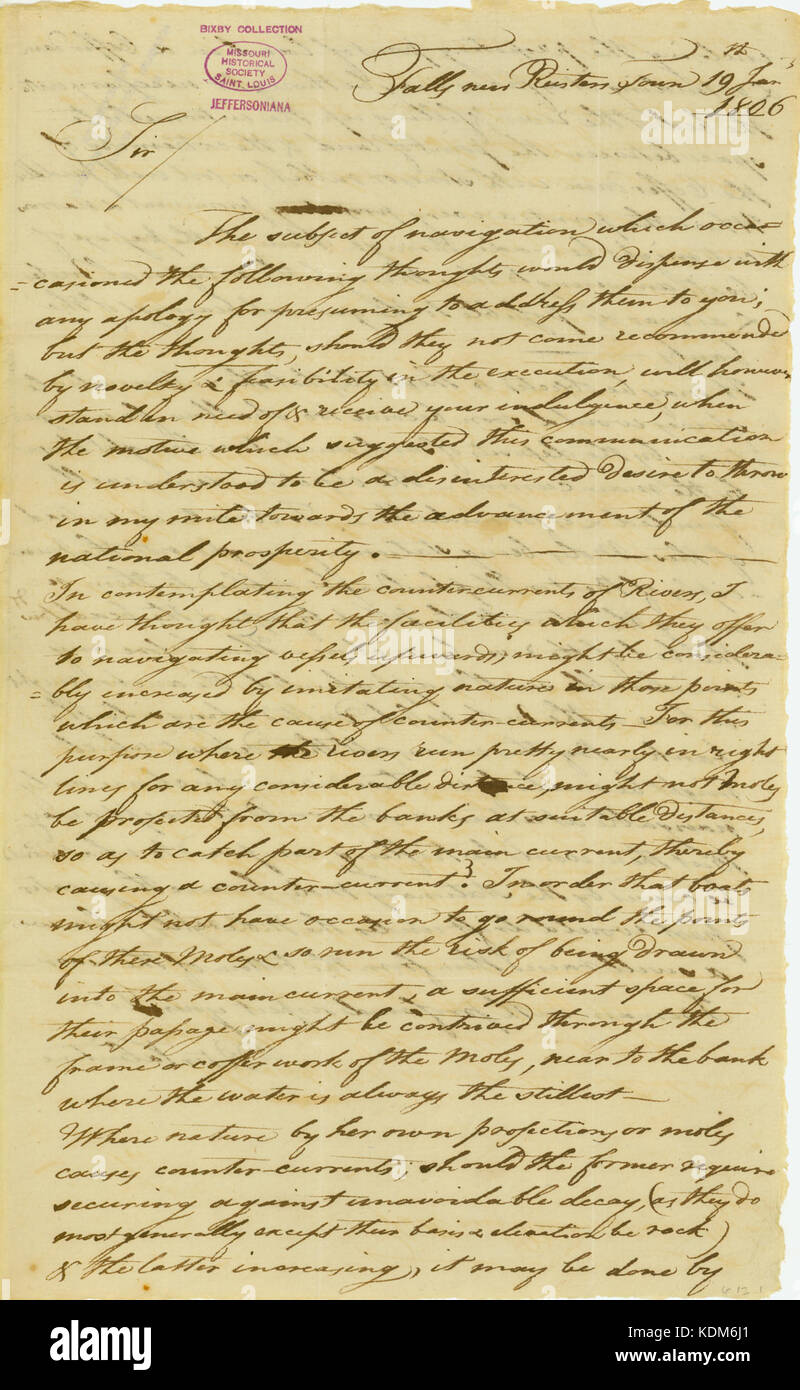 BIXBY COLLECTION
MISSOURI
HISTORICAL
SOCIETY
SAINT LOUIS
JEFFERSONIANA
Falls near Risters Town 19th Jan
1806
Sir/
The subject of navigation which occa=
=casioned the following thoughts would dispense with
any apology for presuming to address them to you;
but the thoughts, should they not come recommended
by novelty & feasibility in the execution, will however
stand in need of & receive your indulgence, when
the motive which suggested this communication
is understood to be a disinterested desire to throw
in my mite towards the advancement of the
national prosperity.
In contemplating the countercurrents of Rivers, I
have thought that the facilities which they offer
to navigating vessels upwards, might be considera-
=bly increased by imitating nature in those points
which are the cause of counter-currents_ For this
purpose where the rivers run pretty nearly in right
lines for any considerable distance, might not Moles
be projected from the banks at suitable distances,
so as to catch part of the main current, thereby
causing a counter-current? In order that boats
might not have occasion to go round the points
of these Moles & so run the risk of being drawn
into the main current, a sufficient space for
their passage might be contrived through the
frame or coffer work of the Moles, near to the bank
where the water is always the stillest_
Where nature by her own projections or moles
causes counter-currents, should the former require
securing against unavoidable decay, (as they do
most generally except their basis & elevation be rock)
& the latter increasing, it may be done by
alamy
Image ID: KDM6J1
www.alamy.com